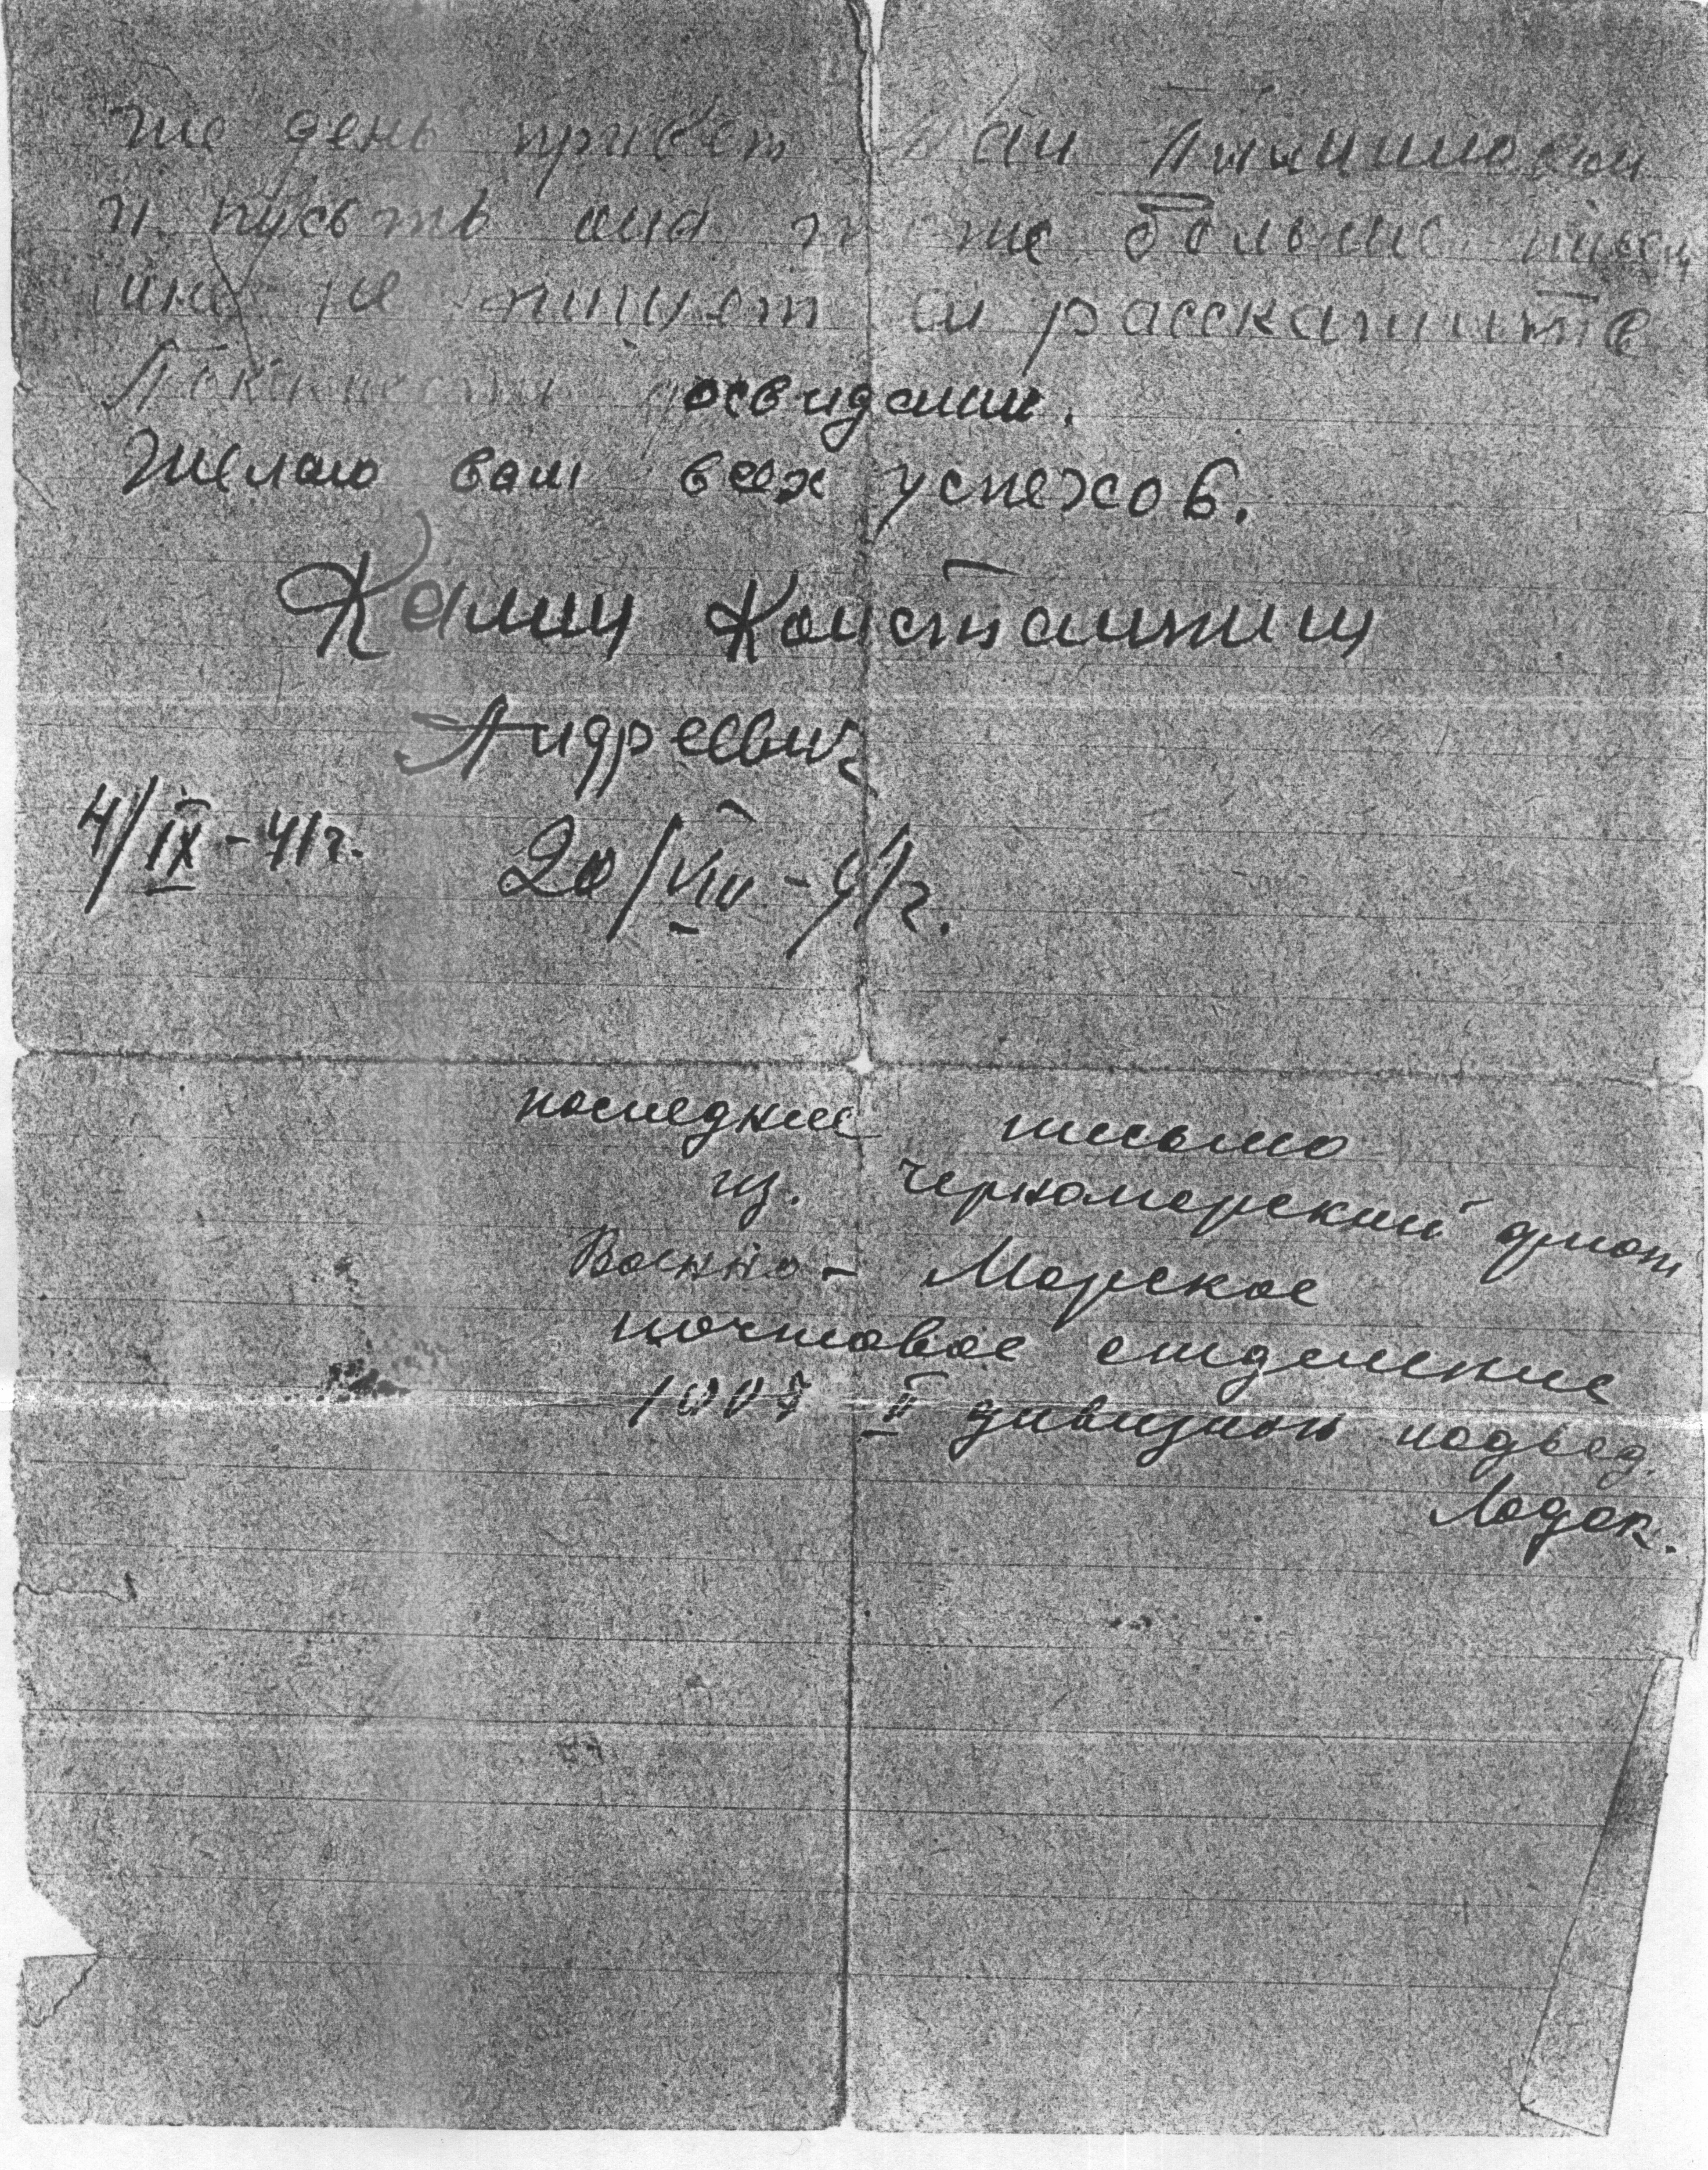 же день привет
и пусть она тоже больше писем
мне не пишет ей расскажите
досвидании.
Желаю вам всех успехов.
Калин Константин
Андреевич
4/IX-41г. 20/VIII-41г.
последнее письмо
из. Черноморский флот
Военно-Морское
почтовое отделение
1007 II дивизион подвод.
Лодок.